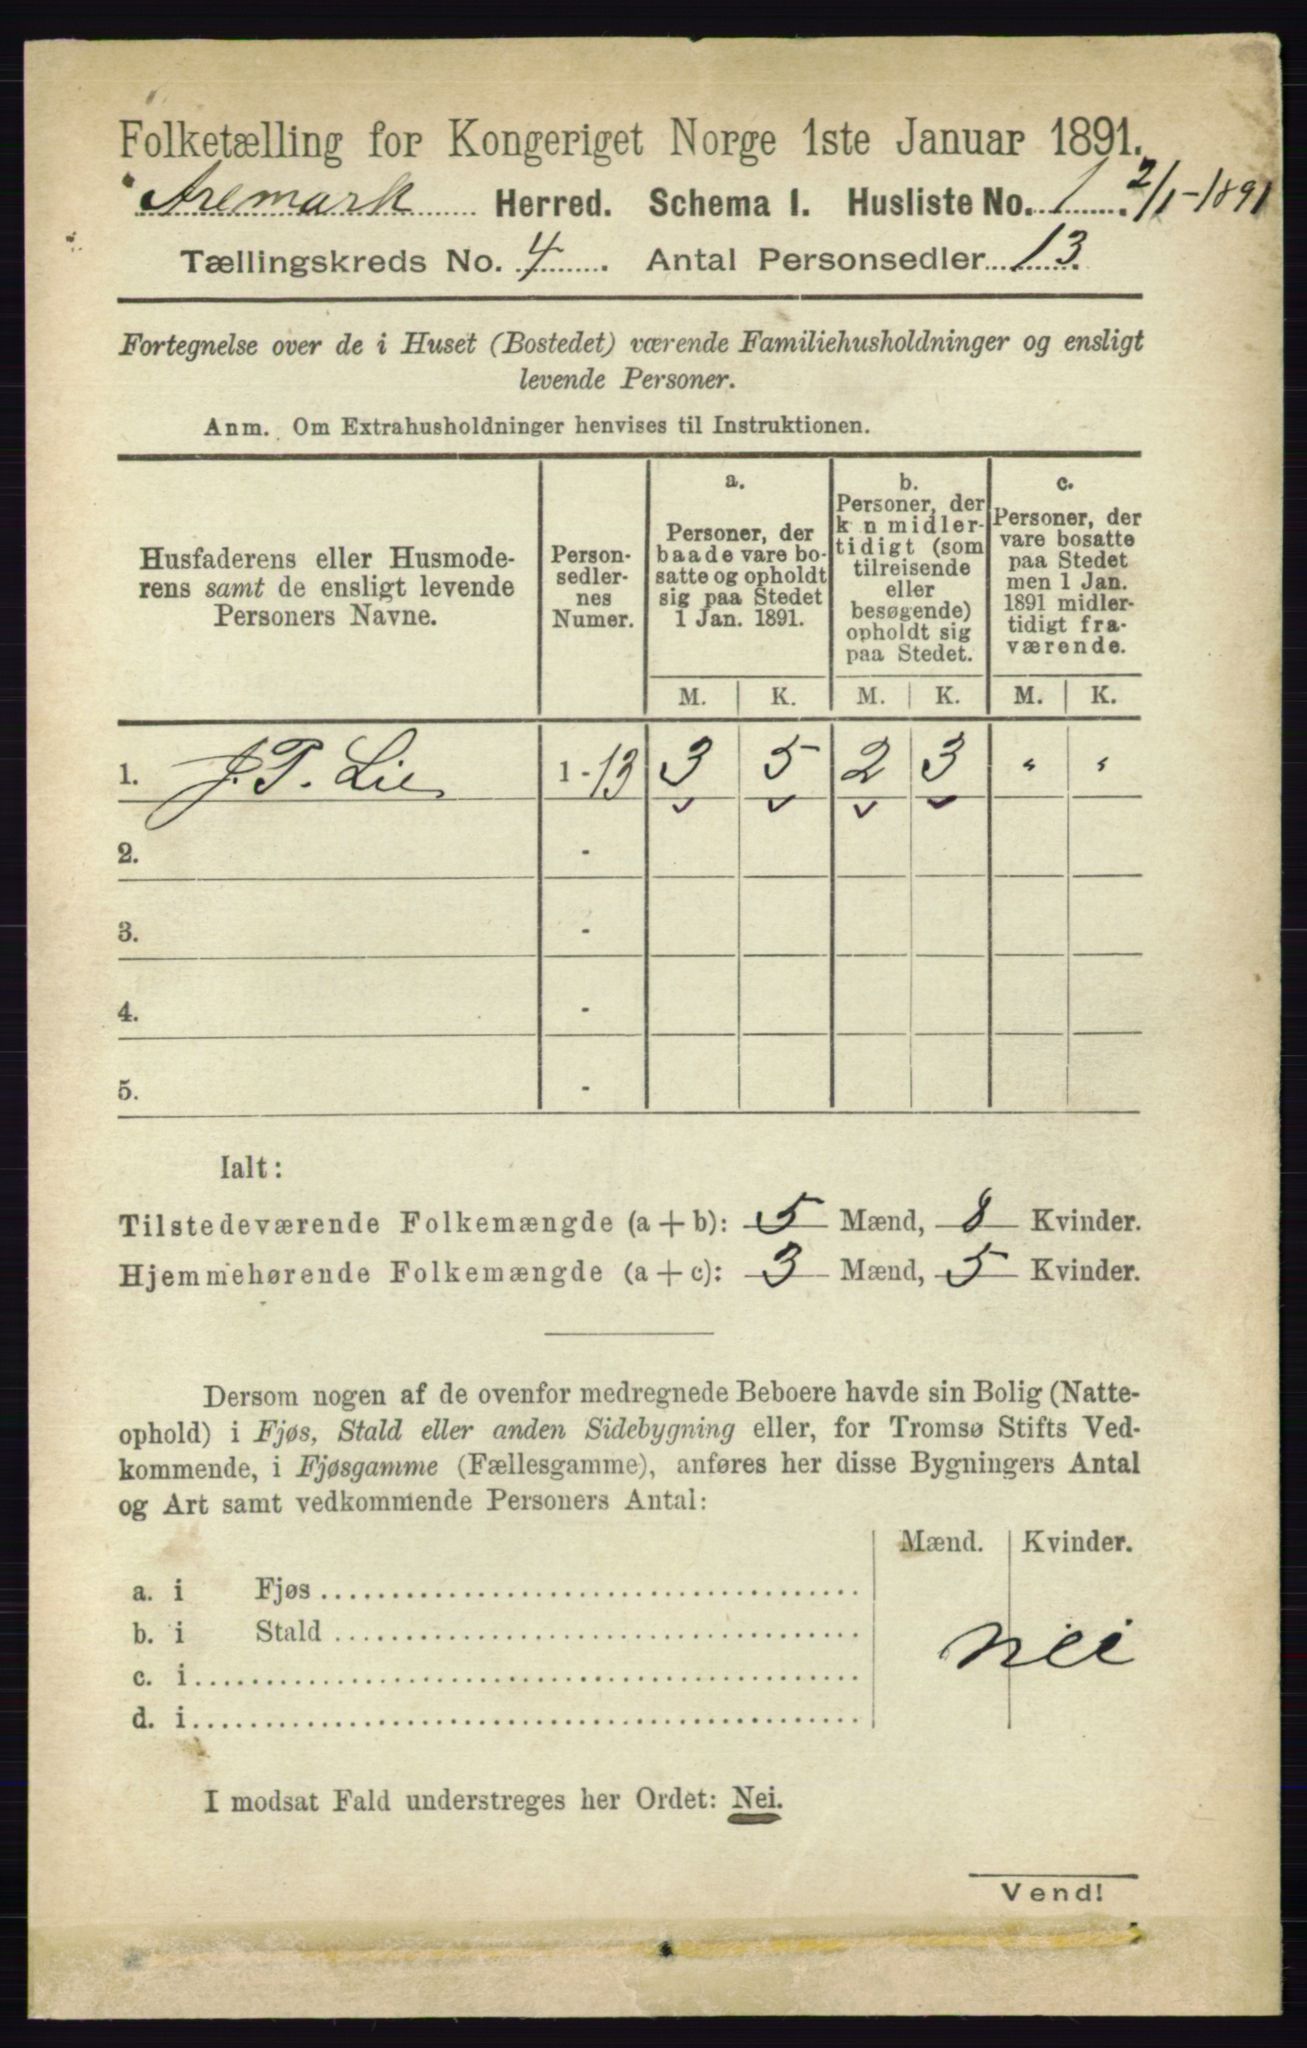 Folketælling for Kongeriget Norge 1ste Januar 1891.
Aremark Herred. Schema 1. Husliste No. 1. 2/1-1891
Tællingskreds No. 4. Antal Personsedler 13.
Fortegnelse over de i Huset (Bostedet) værende Familiehusholdninger og ensligt
levende Personer.
Anm. Om Extrahusholdninger henvises til Instruktionen.
Husfaderens eller Husmode-
rens samt de ensligt levende
Personers Navne.
Person-
sedler-
nes
Numer.
a.
Personer, der
baade vare bo-
satte og opholdt
sig paa Stedet
1 Jan. 1891.
b.
Personer, der
k n midler-
tidigt (som
tilreisende
eller
besøgende)
opholdt sig
paa Stedet.
c.
Personer, der
vare bosatte
paa Stedet
men 1 Jan.
1891 midler-
tidigt fra-
værende.
M. K. M. K. M. K.
1. J. P. Lie 1 - 13 3 5 2 3 " "
2. -
3. -
4. -
5. -
Ialt:
Tilstedeværende Folkemængde (a + b): 5 Mænd, 8 Kvinder.
Hjemmehørende Folkemængde (a + c): 3 Mænd, 5 Kvinder.
Dersom nogen af de ovenfor medregnede Beboere havde sin Bolig (Natte-
ophold) i Fjøs, Stald eller anden Sidebygning eller, for Tromsø Stifts Ved-
kommende, i Fjøsgamme (Fællesgamme), anføres her disse Bygningers Antal
og Art samt vedkommende Personers Antal:
Mænd. Kvinder.
a. i Fjøs
b. i Stald nei
c. i
d. i
I modsat Fald understreges her Ordet: Nei.
Vend!